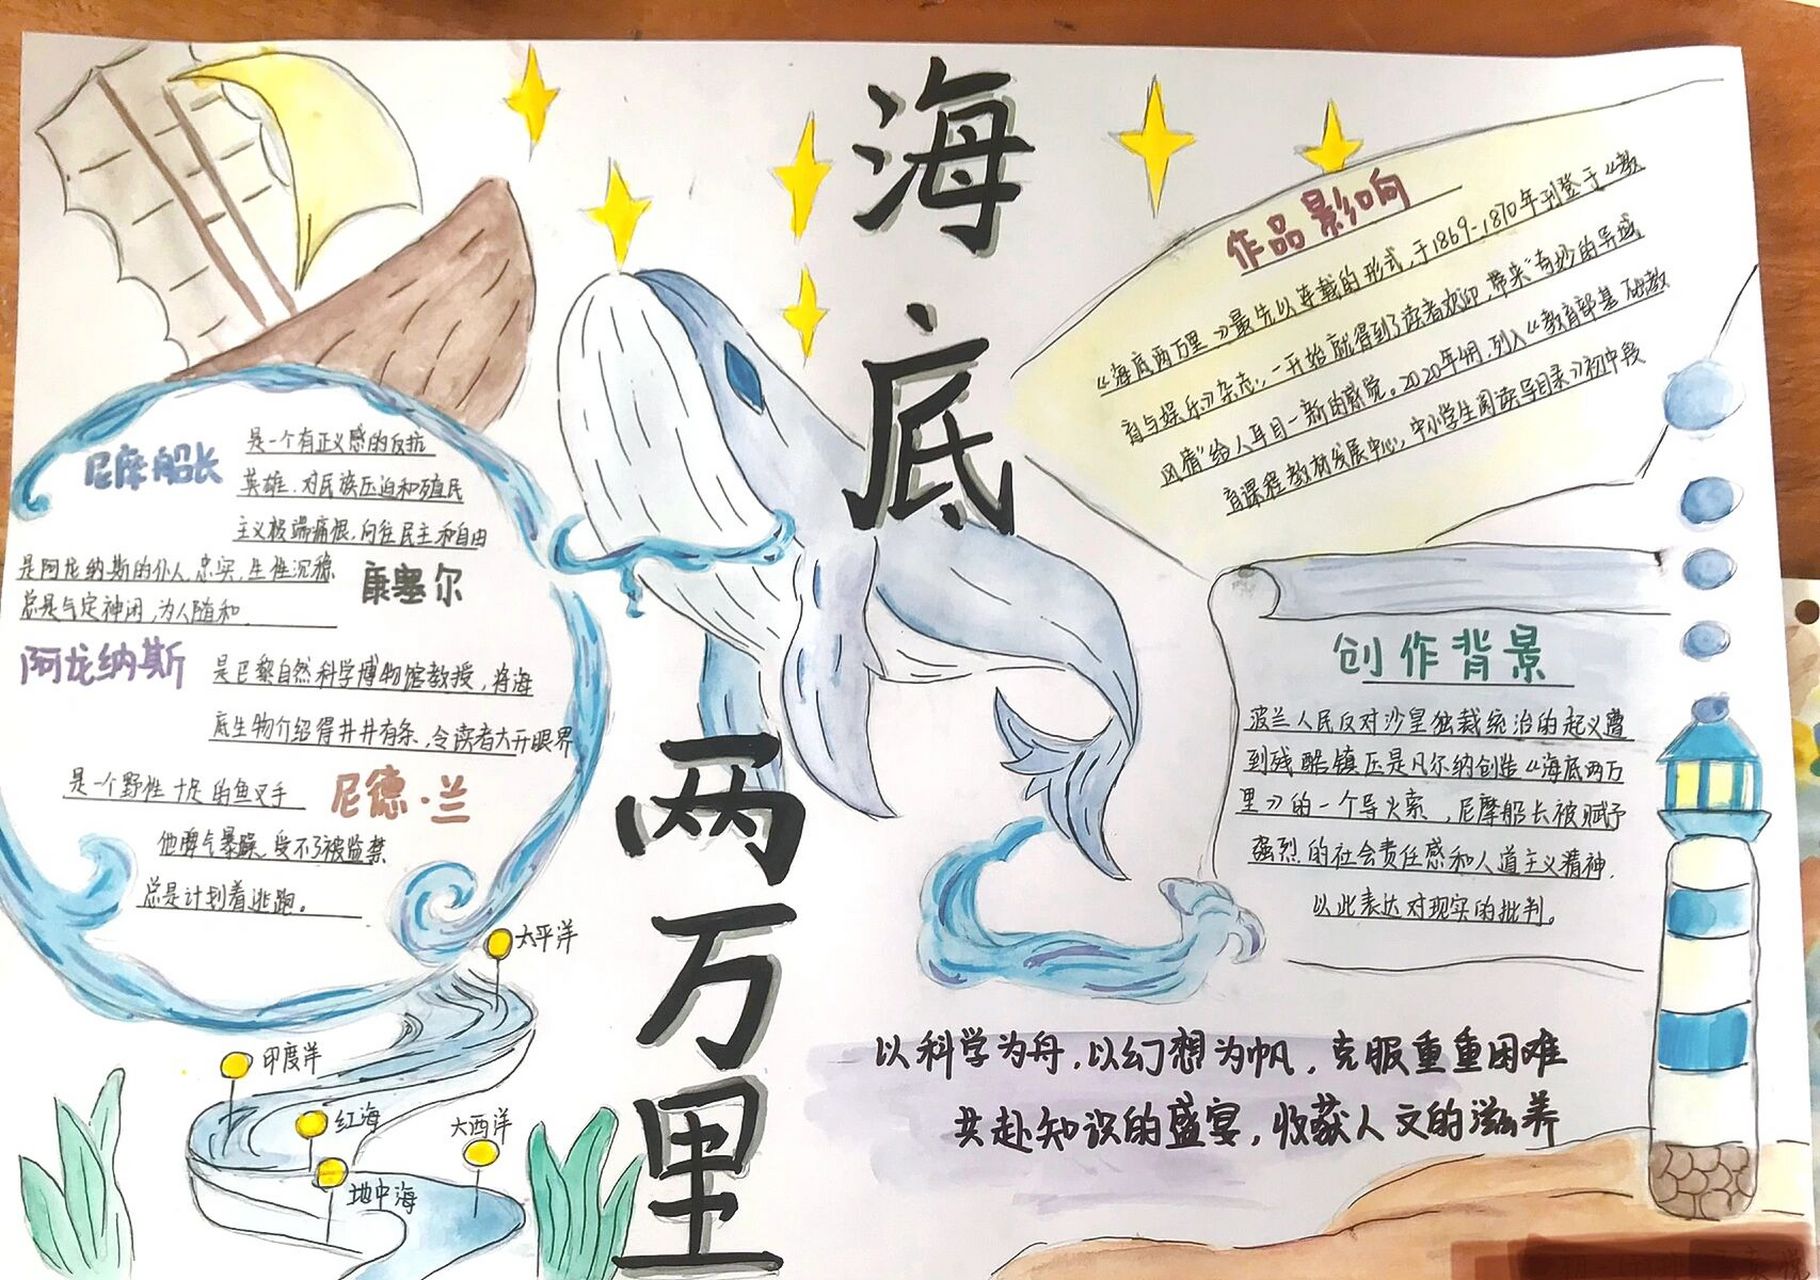 海底两万里
作品影响
《海底两万里》最先以连载的形式，于1869-1870年刊登于《教
育与娱乐》杂志，一开始就得到了读者欢迎，带来“奇妙的异域
风情”给人耳目一新的感觉。2020年4月，列入《教育部基础教
育课程教材发展中心，中小学生阅读导目录》初中段
尼摩船长
是一个有正义感的反抗
英雄，对民族压迫和殖民
主义极端痛恨，向往民主和自由
是阿龙纳斯的仆人，忠实，生性沉稳
总是气定神闲，为人随和
康塞尔
阿龙纳斯
是巴黎自然科学博物馆教授，将海
底生物介绍得井井有条，令读者大开眼界
是一个野性十足的鱼叉手
尼德·兰
他脾气暴躁，受不了被监禁
总是计划着逃跑。
创作背景
波兰人民反对沙皇独裁统治的起义遭
到残酷镇压是凡尔纳创造《海底两万
里》的一个导火索，尼摩船长被赋予
强烈的社会责任感和人道主义精神，
以此表达对现实的批判。
太平洋
印度洋
红海
大西洋
地中海
以科学为舟，以幻想为帆，克服重重困难
共赴知识的盛宴，收获人文的滋养